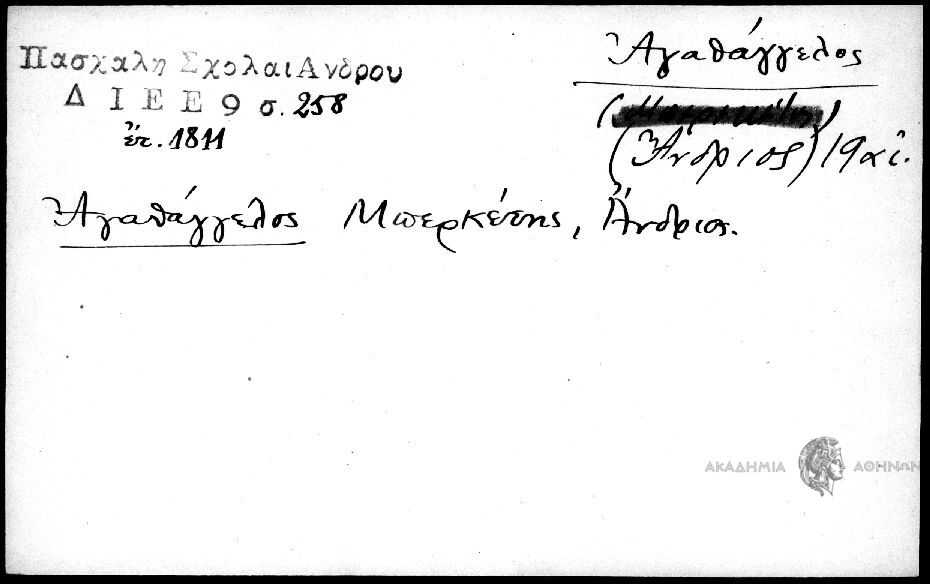 Πασχαλη Σχολαι Ανδρου
Δ Ι Ε Ε 9 σ. 258
ἔτ. 1811
Ἀγαθάγγελος
(Ἄνδριος) 19 αἰ.
Ἀγαθάγγελος Μπερκέτης, Ἄνδριος.
ΑΚΑΔΗΜΙΑ ΑΘΗΝΩΝ